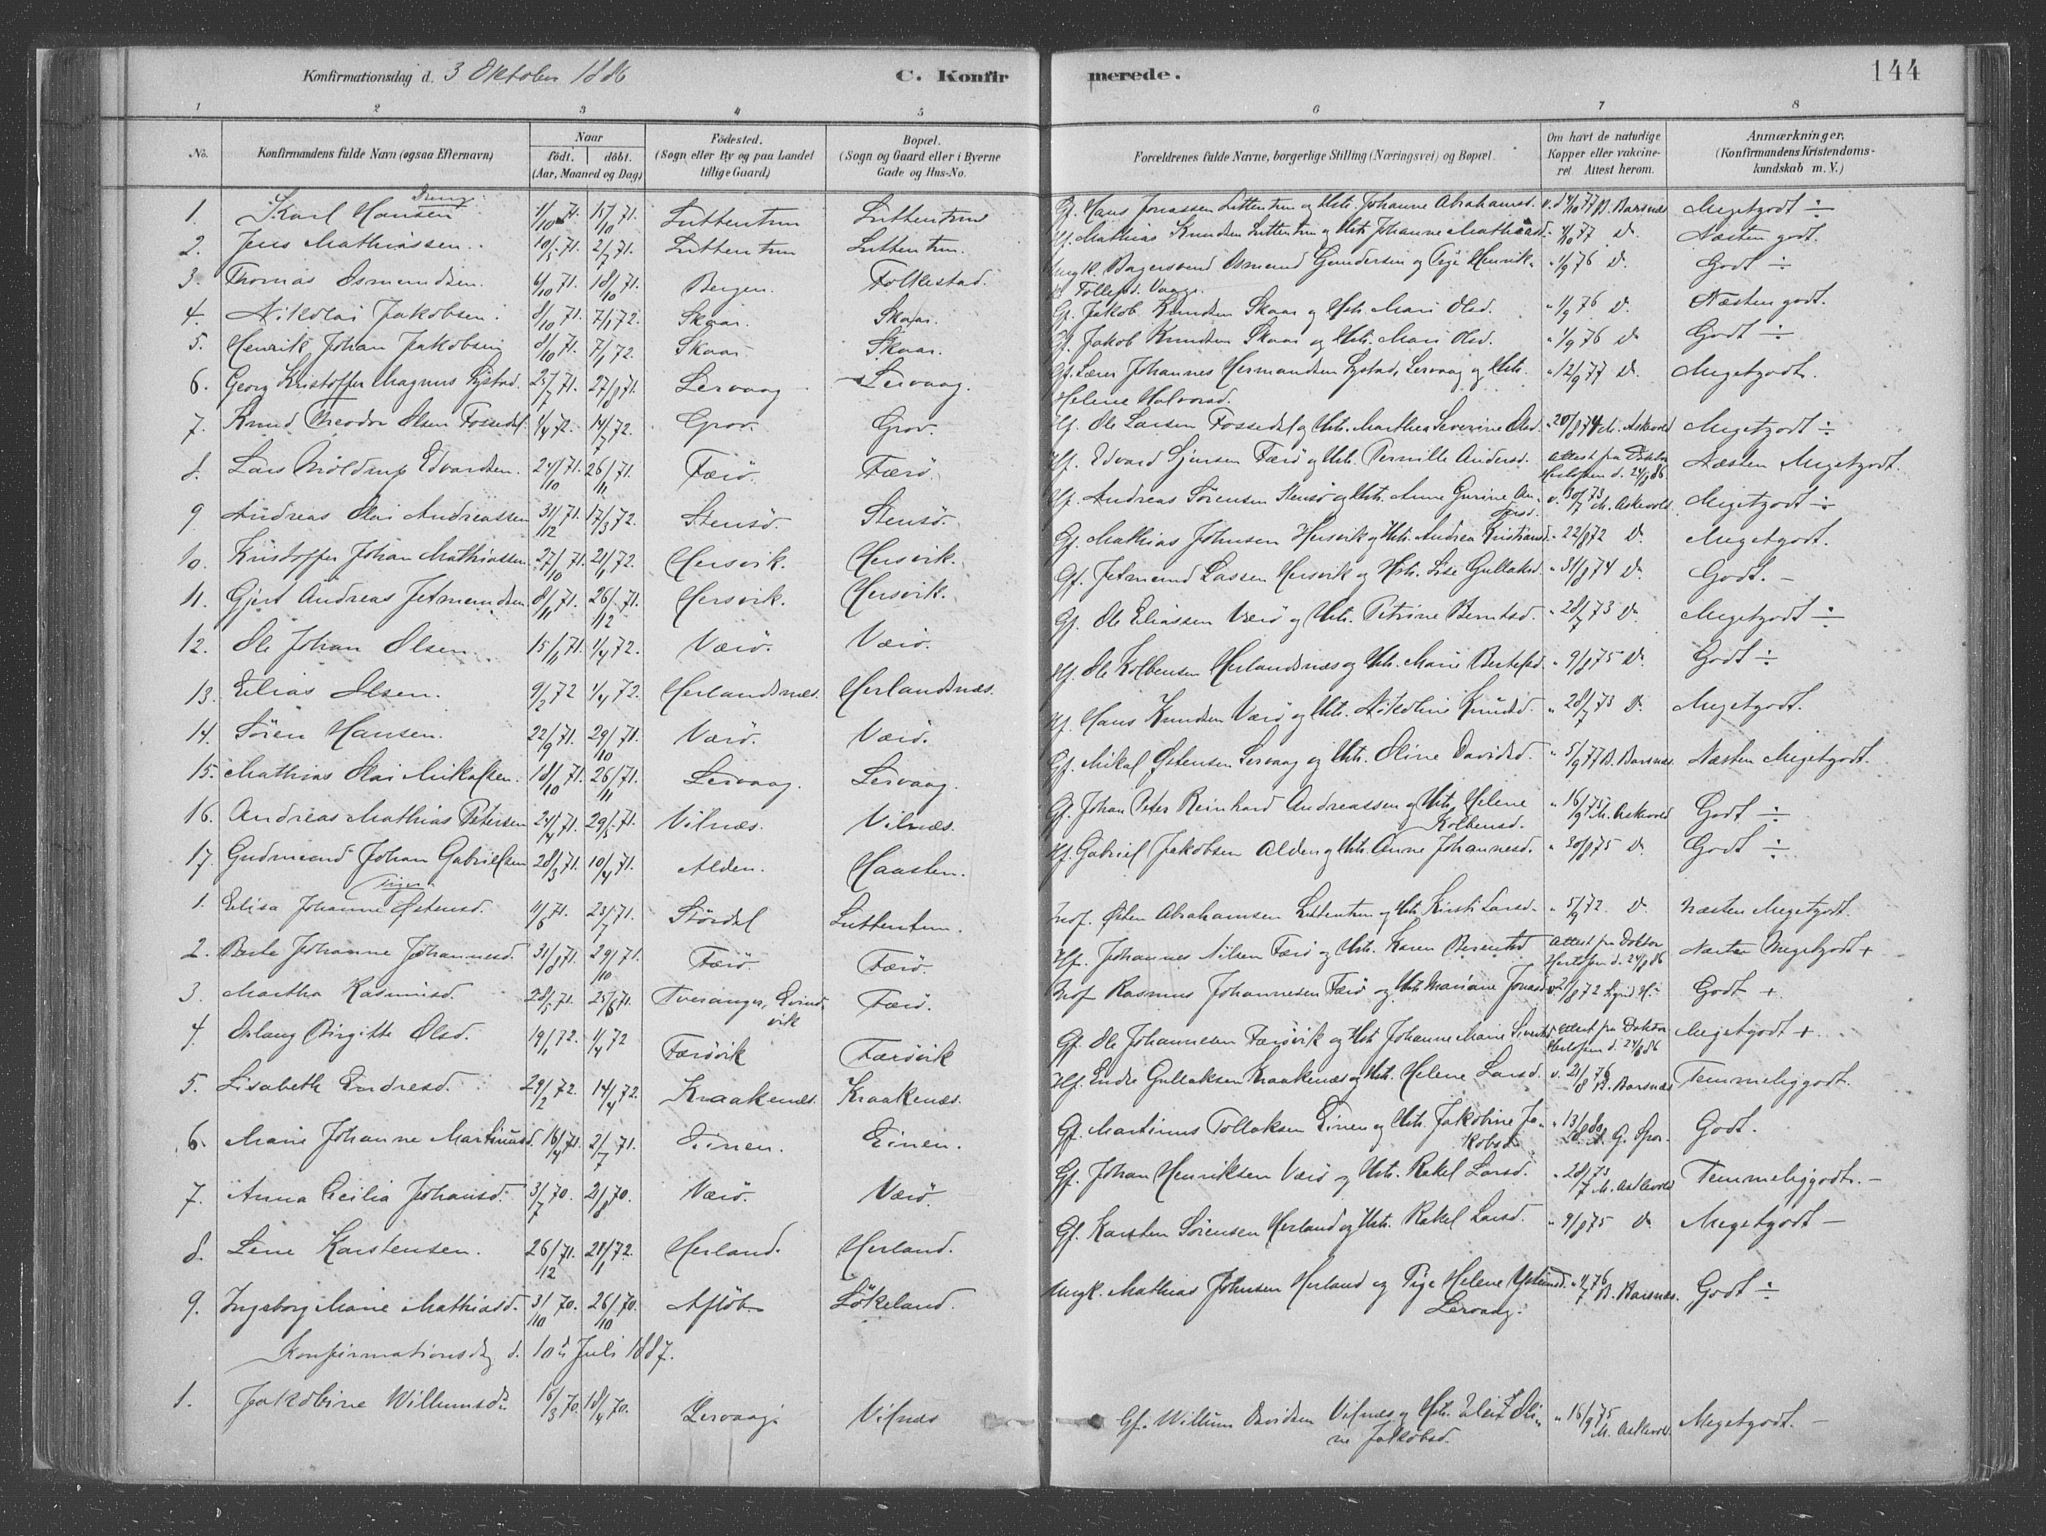 Konfirmationsdag d. 3 Oktober 1886 C. Konfir merede. 144
1 2 3 4 5 6 7 8
No. Konfirmandens fulde Navn (ogsaa Efternavn) Naar födt. döbt. (Aar, Maaned og Dag) Födested. (Sogn eller By og paa Landet tillige Gaard) Bopæl. (Sogn og Gaard eller i Byerne Gade og Hus-No. Forældrenes fulde Navne, borgerlige Stilling (Næringsvei) og Bopæl. Om havt de naturlige Kopper eller vakcineret Attest herom. Anmærkninger. (Konfirmandens Kristendomskundskab m. V.)
Dreng.
1. Karl Hansen 1/10 71. 15/10 71. Luttentun Luttentun Gf. Hans Jonassen Luttentun og Hst. Johanne Abrahamsd. v. d 4/10 77 B. Barsnæs Megetgodt ÷
2. Jens Mathiassen. 10/5 71. 2/7 71. Luttentun Luttentun. Hf. Mathias Knudsen Luttentun og Hst. Johanne Mathiasd. " 4/10 77 D. Næsten godt.
3. Thomas Osmundsen. 6/10 71. 18/10 71. Bergen. Folkestad. Ungk. Bagersvend Osmund Gundersen og Pige Henrikke Tollefsd. Vaage. " 1/9 76 D. Godt ÷
4. Nikolai Jakobsen. 8/10 71. 7/1 72. Skaar. Skaar. Gf. Jakob Knudsen Skaar og Hst. Mari Olsd. " 1/9 76 D. Næsten godt.
5. Henrik Johan Jakobsen 8/10 71. 7/1 72. Skaar. Skaar. Gf. Jakob Knudsen Skaar og Hst. Mari Olsd. " 1/9 76 D. Godt ÷
6. Georg Kristoffer Magnus Systad. 25/7 71. 27/8 71. Lervaag Lervaag. Gf. Lærer Johannes Hermundsen Systad, Lervaag og Hst. " 12/9 77 D. Megetgodt.
Helene Halvorsd.
7. Knud Theodor Olsen Fossedal. 1/4 72. 14/7 72. Grov. Grov. Hf. Ole Larsen Fossedal og Hst. Marthea Severine Olsd. " 20/8 74 M. Askevold Megetgodt ÷
8. Lars Moldrup Edvardsen. 24/10 71. 26/11 71. Færö. Færö. Hf. Edvard Simsen Færö og Hst. Pernille Andersd. Attest fra Doktor Hertofsen d. 24/9 86 Næsten Megetgodt.
9 Andreas Olai Andreassen 31/12 71. 17/3 72. Stensö. Stensö. Hf. Andreas Sörensen Stensö og Hst. Anne Gurine Andersd. v. 30/7 73 M. Askevold. Megetgodt ÷
10. Kristoffer Johan Mathiassen. 27/10 71. 21/1 72. Hersvik. Hersvik. Gf. Mathias Johnsen Hersvik og Hst. Andrea Kristiansd. " 22/8 72 D. Megetgodt.
11. Gjert Andreas Jetmundsen. 8/11 71. 26/12 71. Hersvik. Hersvik. Gf. Jetmund Lassen Hersvik og Hst. Lise Gullaksd. " 31/8 74 D. Godt. -
12. Ole Johan Olsen. 15/11 71. 1/4 72. Værö. Værö. Gf. Ole Eliassen Værö og Hst. Petrine Berntsd. " 28/7 73 D. Megetgodt ÷
13. Elias Olsen. 9/2 72 1/4 72. Herlandsnæs. Herlandsnæs. Hf. Ole Kolbensen Herlandsnæs og Hst. Marie Bertelsd. " 9/8 75 D. Godt ÷
14. Sören Hansen. 22/9 71. 29/10 71. Værö. Værö. Hf. Hans Knudsen Værö og Hst. Nikoline Knudsd. " 28/7 73 D. Megetgodt.
15. Mathias Olai Mikalsen. 18/10 71. 26/11 71. Lervaag. Lervaag. Gf. Mikal Östensen Lervaag og Hst. Oline Davidsd. " 5/9 77 B. Barsnæs. Næsten Megetgodt.
16. Andreas Mathias Petersen 24/4 71. 29/5 71. Vilnæs. Vilnæs. Gf. Johan Peter Reinhard Andreassen og Hst. Helene Kolbensd. " 16/9 75 M. Askevold Godt ÷
17. Gudmund Johan Gabrielsen 28/3 71. 10/4 71. Alden. Haasten. Hf. Gabriel Jakobsen Alden og Hst. Anne Johannesd. " 30/8 75 D. Godt ÷
Piger.
1. Elisa Johanne Östensd. 11/6 71. 23/7 71. Stördal Luttentun. Inds. Östen Abrahamsen Luttentun og Hst. Kirsti Larsd. " 5/9 72 D. Næsten Megetgodt.
2. Berte Johanne Johannesd. 31/8 71. 29/10 71. Færö. Færö. Hf. Johannes Nilsen Færö og Hst. Karen Berentsd Attest fra Doktor Hertofsen d. 24/8 86 Næsten Megetgodt +
3. Martha Rasmusd. 28/5 71. 25/6 71. Tveranger, Evindvik Færö. Inds Rasmus Johannesen Færö og Hst. Mariane Jonasd. v. 21/8 72 Godt +
4. Oslaug Birgitte Olsd. 19/1 72. 1/4 72 Færövik Færövik Gf. Ole Johannesen Færövik og Hst. Johanne Marie Sivertsd. Attest fra Doktor Hertofsen d. 24/8 86 Megetgodt +
5. Lisabeth Endresd. 29/2 72. 14/4 72. Kraakenæs. Kraakenæs. Hf. Endre Gullaksen Kraakenæs og Hst. Helene Larsd. v. 21/8 76 B. Barsnæs Temmeliggodt.
6. Marie Johanne Martinusd. 16/4 71. 2/7 71. Einen. Einen. Gf. Martinus Tollaksen Einen og Hst. Jakobine Jakobsd. " 13/8 80 Godt.
7. Anna Cecilia Johansd. 3/7 70. 21/8 70. Værö. Værö. Gf. Johan Henriksen Værö og Hst. Rakel Larsd. " 28/7 73 M. Askevold Temmeliggodt. -
8. Line Karstensen. 26/12 71. 28/1 72. Herland. Herland. Gf. Karsten Sörensen Herland og Hst. Rakel Larsd. " 9/8 75 D. Megetgodt -
9. Ingeborg Marie Mathiasd. 3/10 70. 26/10 70. Aflöb Lökeland. Ungk. Mathias Johnsen Herland og Pige Helene Lervaag. B. Barsnæs. Godt ÷
Konfirmationsdag d. 10 Juli 1887.
1. Jakobine Willumsd. 16/3 70. 18/4 70. Lervaag Vilnæs Gf. Willum Davidsen Vilnæs og Hst. Oline Jakobsd. " 16/9 75 M. Askevold. Megetgodt. -